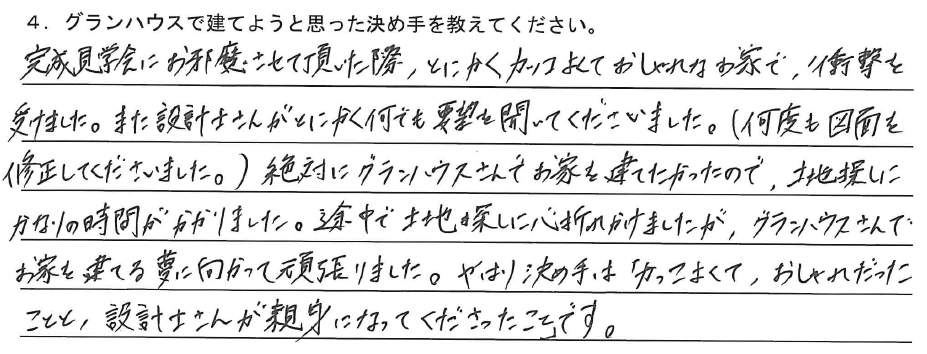 4. グランハウスで建てようと思った決め手を教えてください。
完成見学会にお邪魔させて頂いた際、とにかくカッコよくておしゃれなお家で、衝撃を
受けました。また設計士さんがとにかく何でも要望を聞いてくださいました。(何度も図面を
修正してくださいました。)絶対にグランハウスさんでお家を建てたかったので、土地探しに
かなりの時間がかかりました。途中で土地探しに心折れかけましたが、グランハウスさんで
お家を建てる夢に向かって頑張りました。やはり決め手は「かっこよくて、おしゃれだった
ことと、設計士さんが親身になってくださったこと」です。